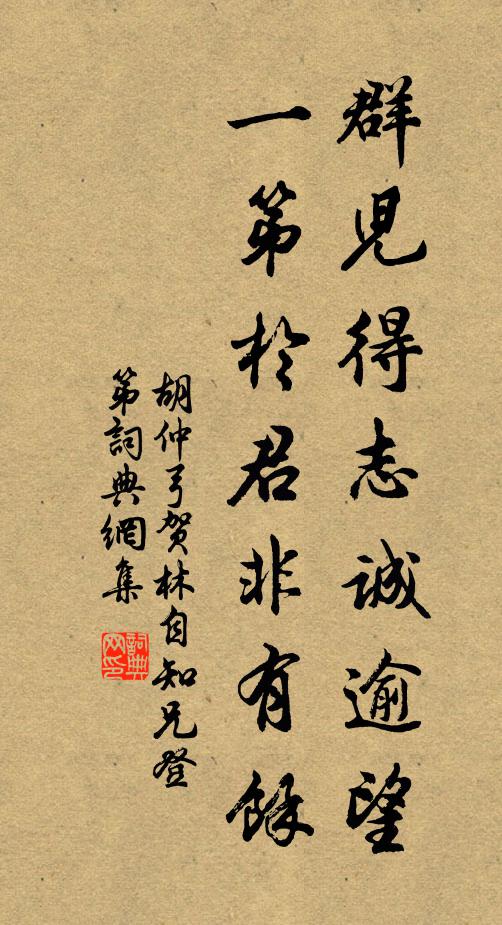 群児得志誠逾望
一第於君非有餘
胡仲弓賀林自知兄登
第詞典網集
詞典
网印